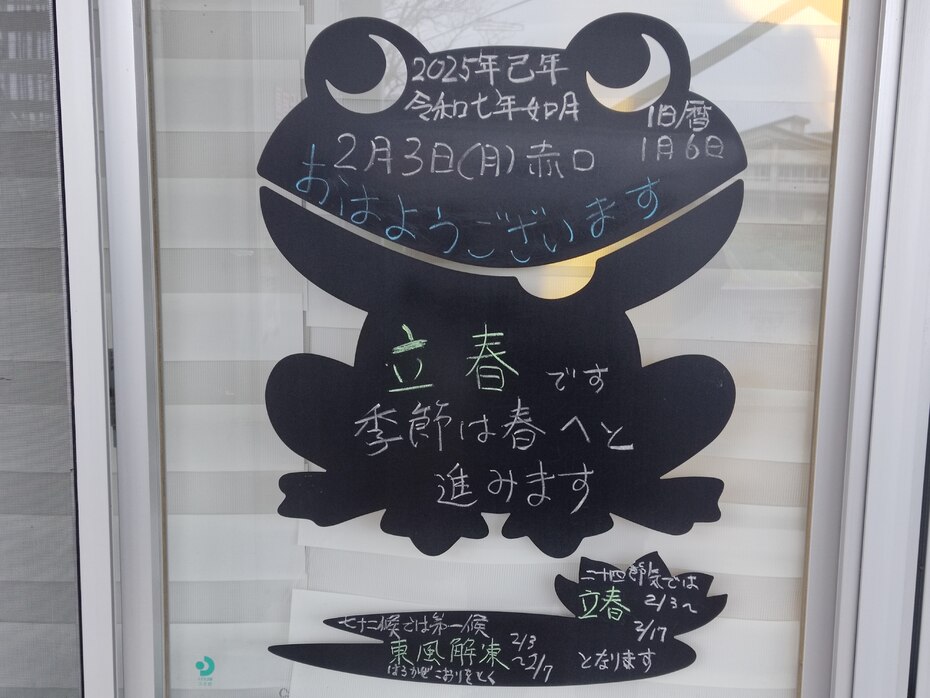 2025年己年
令和七年如月
旧暦
1月6日
2月3日(月)赤口
おはようございます
立春です
季節は春へと
進みます
二十四節気では
立春 2/3~
2/17
となります
七十二候では第一候
東風解凍 2/3
~2/7
はるかぜこおりをとく